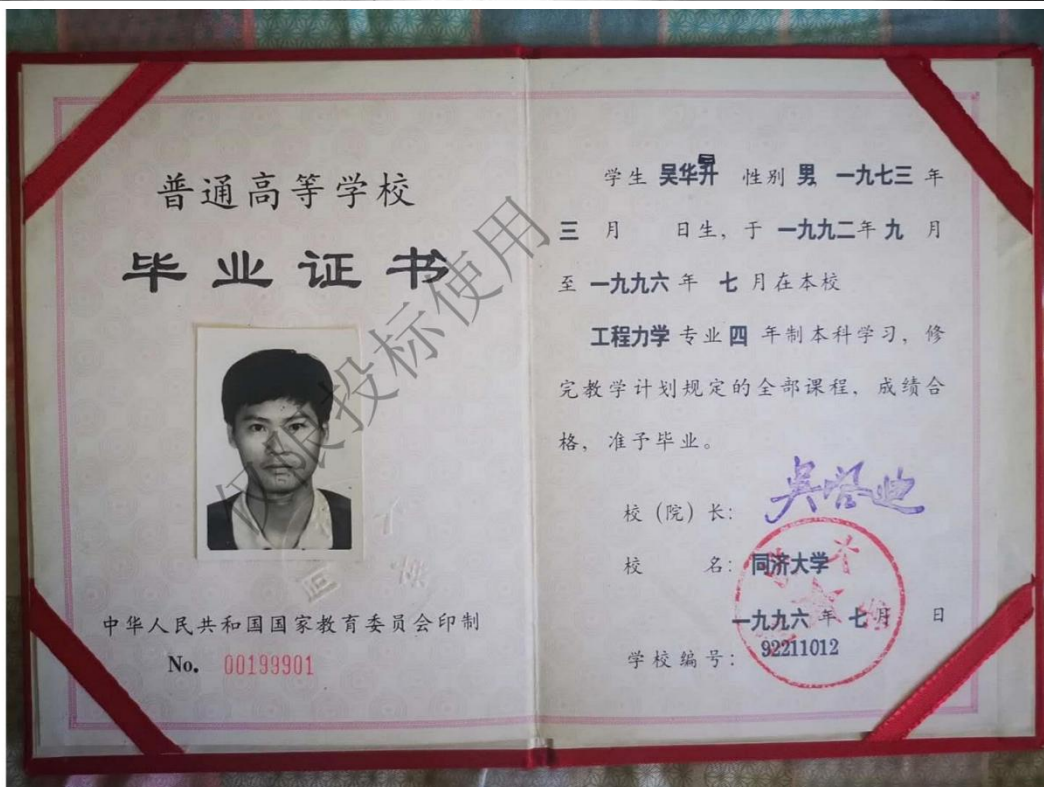 普通高等学校
毕业证书
中华人民共和国国家教育委员会印制
No. 00199901
学生 吴华昇 性别 男 一九七三 年
三 月 日生，于 一九九二年 九 月
至 一九九六 年 七 月在本校
工程力学 专业 四 年制本科学习，修
完教学计划规定的全部课程，成绩合
格，准予毕业。
校（院）长： 吴启迪
校 名： 同济大学
一九九六 年 七 月 日
学校编号： 92211012
投标使用